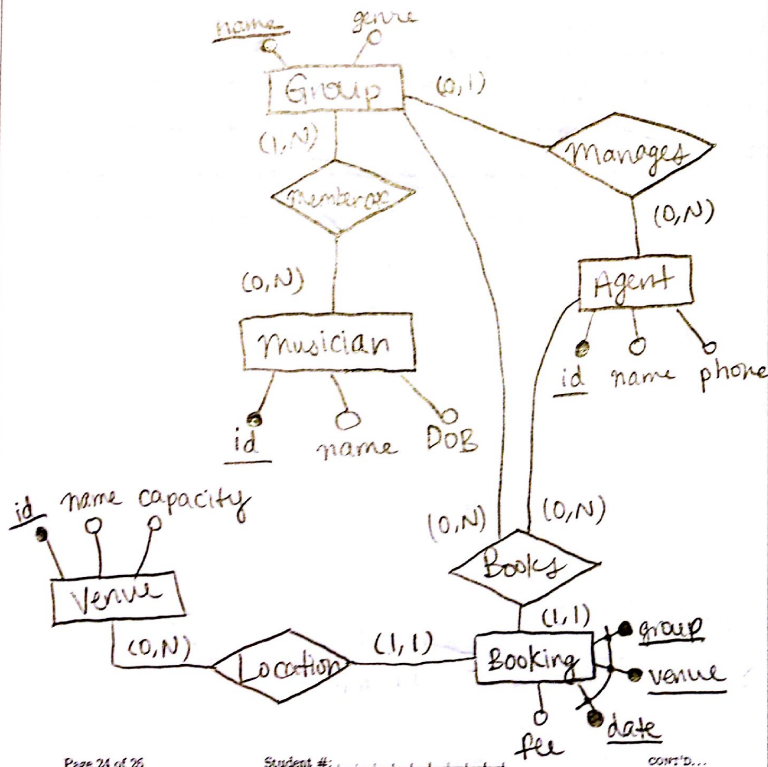 name
genre
Group
(0,1)
(1,N)
Manages
Member of
(0,N)
(0,N)
Agent
Musician
id name phone
id name DOB
id name capacity
(0,N) (0,N)
Books
Venue
(1,1)
group
(0,N)
(1,1)
Location
Booking
venue
date
fee
Page 24 of 26
Student #:
CONT'D...